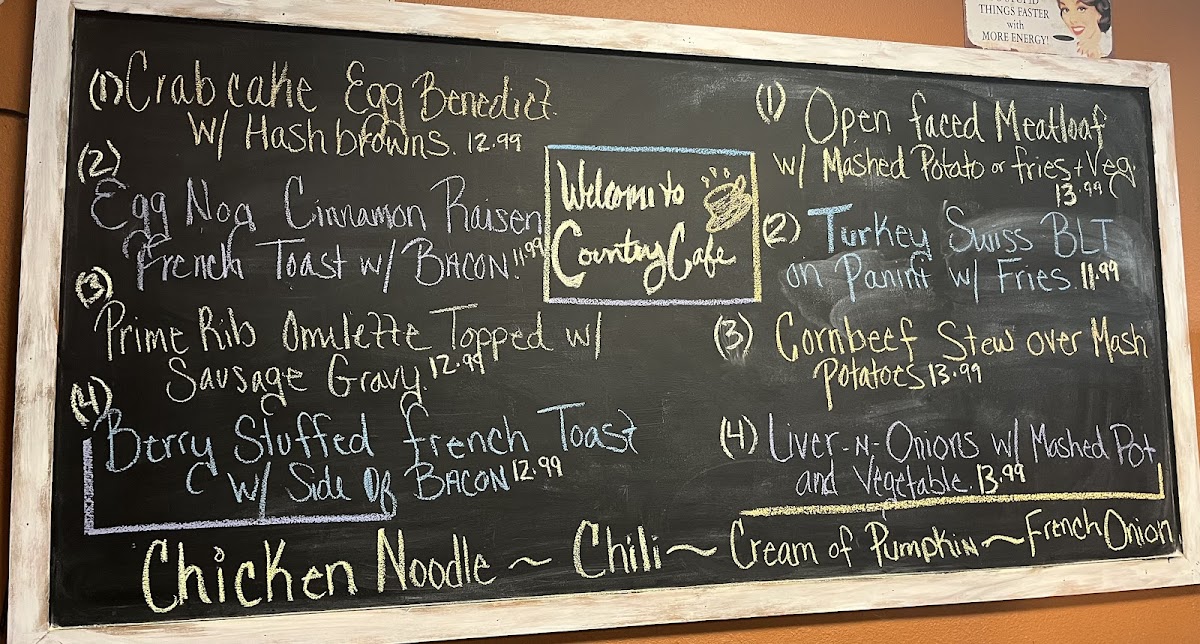 (1) Crabcake Egg Benedict
w/ Hashbrowns. 12.99
(2)
Egg Nog Cinnamon Raisen
French Toast w/ BACON. 11.99
(3)
Prime Rib Omulette Topped w/
Sausage Gravy. 12.99
(4)
Berry Stuffed french Toast
w/ Side Of BACON 12.99
Welcome to
Country Cafe
(1) Open faced Meatloaf
w/ Mashed Potato or fries + Veg.
13.99
(2) Turkey Swiss BLT
on Panini w/ Fries. 11.99
(3) Cornbeef Stew over Mash
Potatoes 13.99
(4) Liver-N-Onions w/ Mashed Pot
and Vegetable. 13.99
Chicken Noodle ~ Chili ~ Cream of Pumpkin ~ French Onion
THINGS FASTER
with
MORE ENERGY!